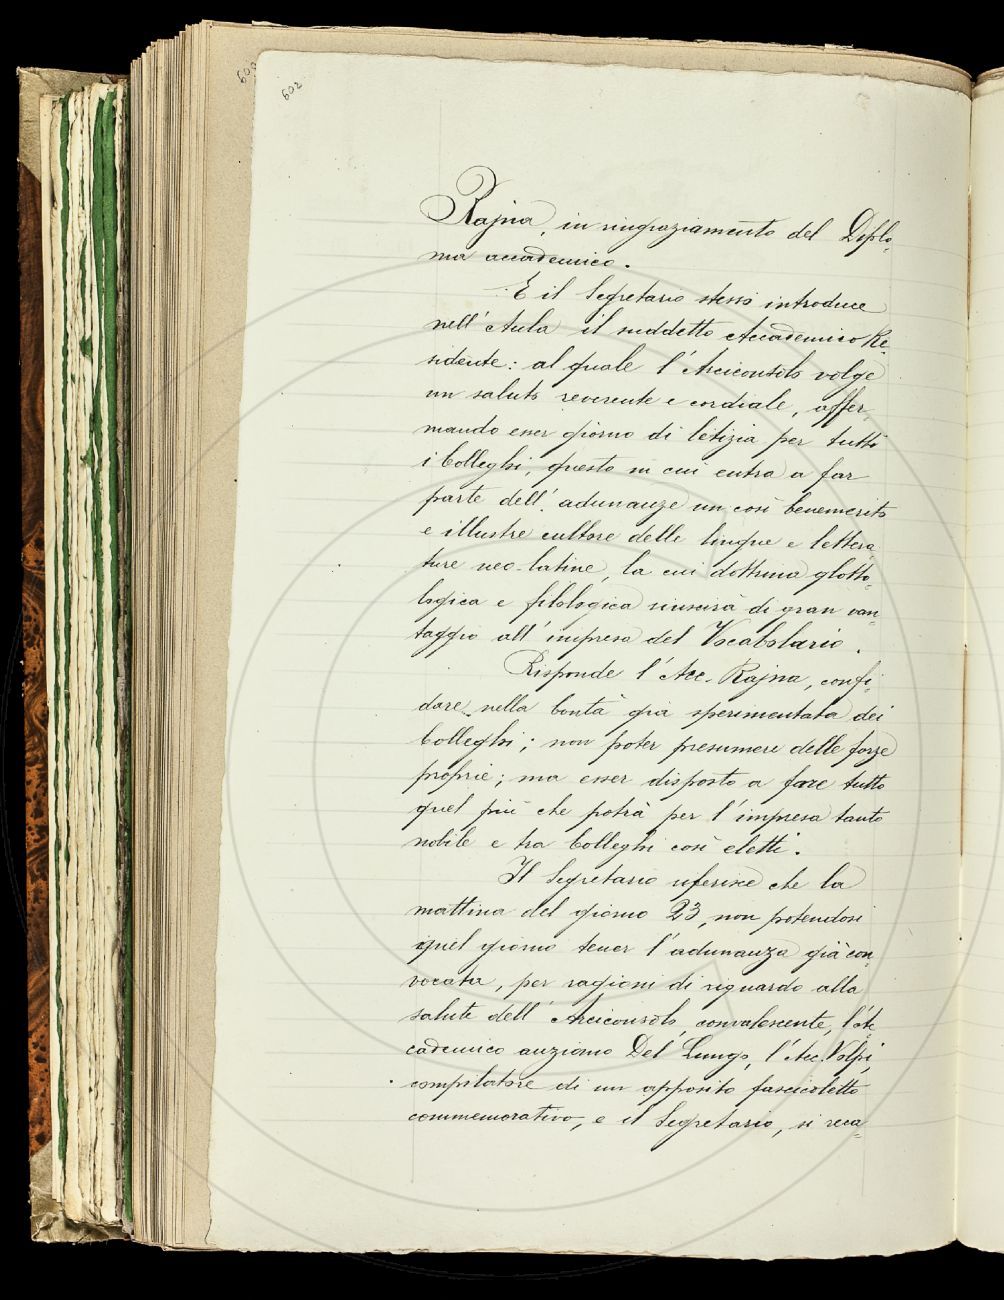 602
Rajna, in ringraziamento del Diplo-
ma accademico.
E il Segretario stesso introduce
nell'Aula il suddetto Accademico Re-
sidente: al quale l'Arciconsolo volge
un saluto reverente e cordiale, affer-
mando esser giorno di letizia per tutti
i Colleghi, questo in cui entra a far
parte dell'adunanze un così benemerito
e illustre cultore delle lingue e lettera-
ture neo-latine, la cui dottrina glotto-
logica e filologica riuscirà di gran van-
taggio all'impresa del Vocabolario.
Risponde l'Acc. Rajna, confi-
dare nella bontà già sperimentata dei
Colleghi; non poter presumere delle forze
proprie; ma esser disposto a fare tutto
quel più che potrà per l'impresa tanto
nobile e tra Colleghi così eletti.
Il Segretario riferisce che la
mattina del giorno 23, non potendosi
quel giorno tener l'adunanza già con-
vocata, per ragioni di riguardo alla
salute dell'Arciconsolo, convalescente, l'Ac-
cademico anziano Del Lungo, l'Acc. Volpi,
compilatore di un apposito fascicoletto
commemorativo, e il Segretario, si reca-